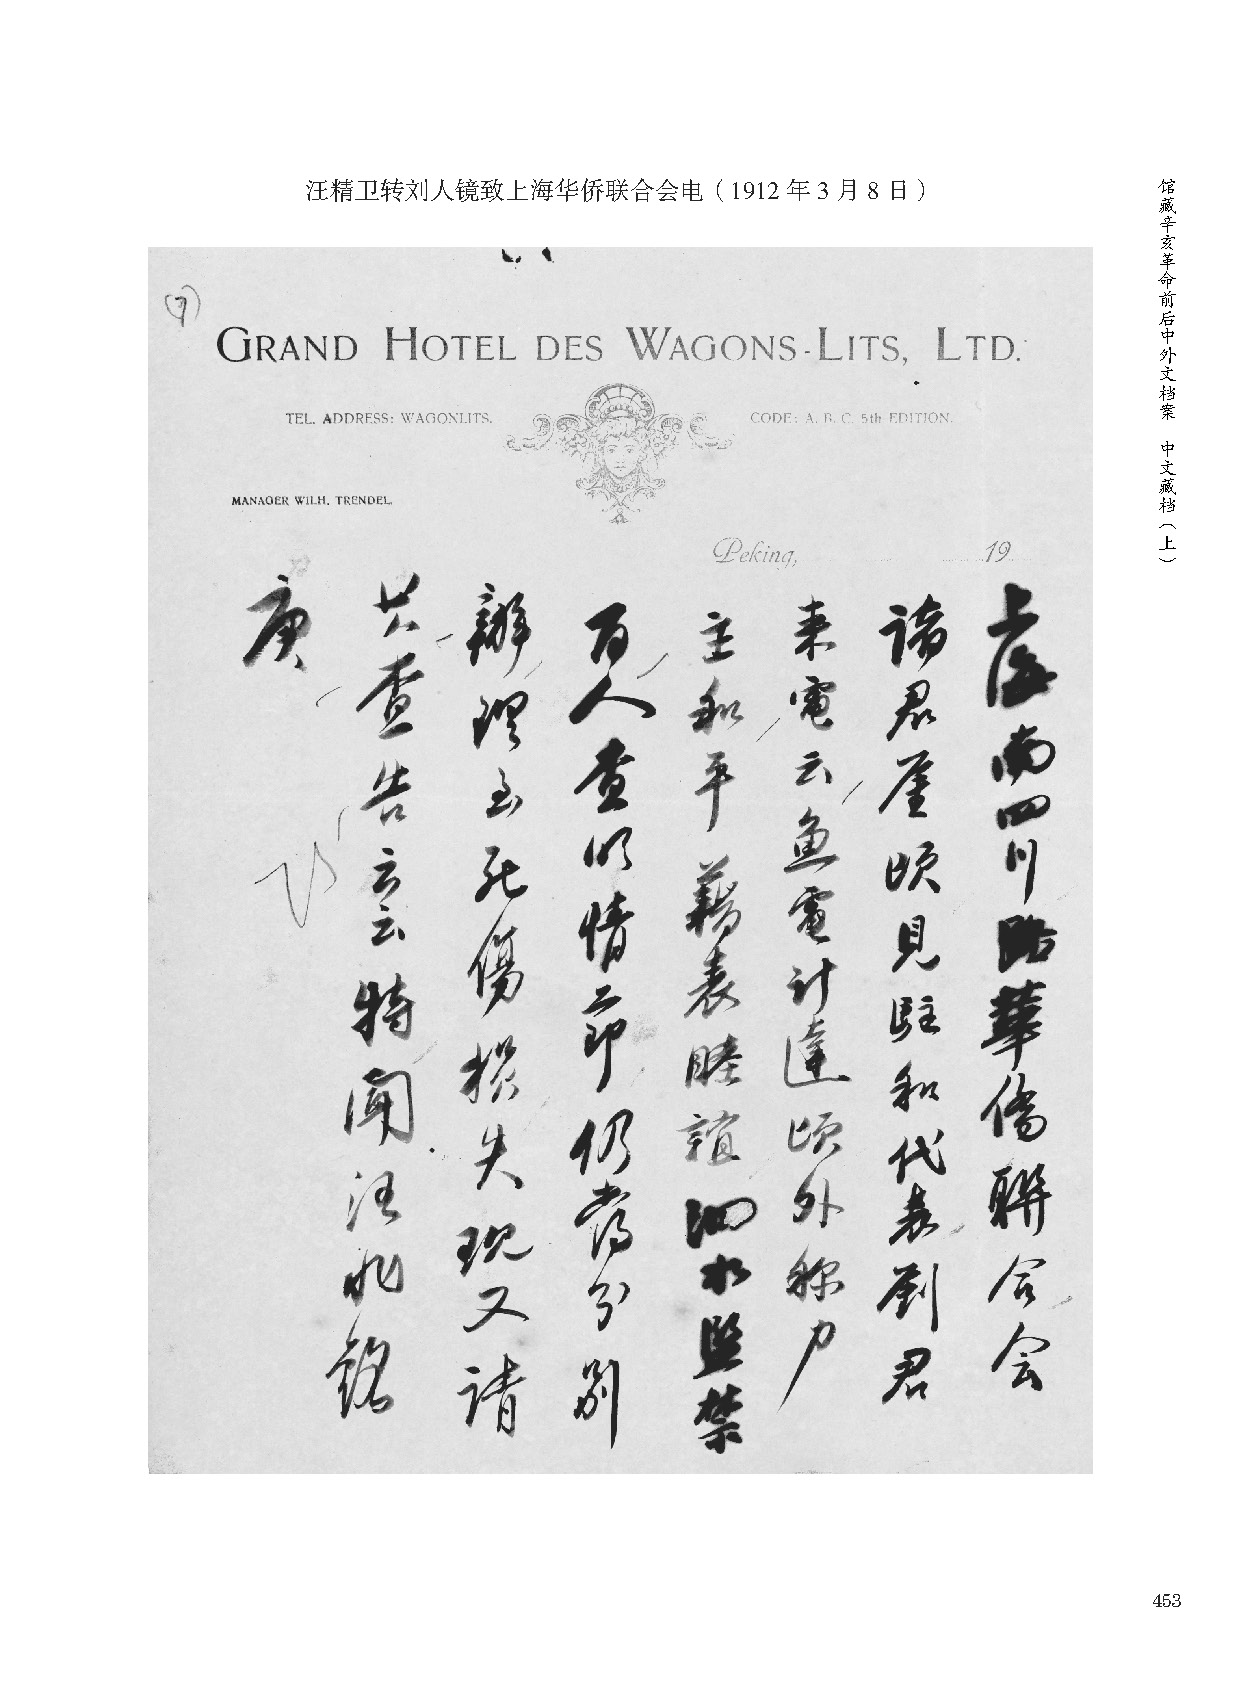 汪精卫转刘人镜致上海华侨联合会电（1912 年 3 月 8 日）
馆藏辛亥革命前后中外文档案 中文藏档（上）
(7)
GRAND HOTEL DES WAGONS-LITS, LTD.
TEL. ADDRESS: WAGONLITS.
CODE: A. B. C. 5th EDITION.
MANAGER WILH. TRENDEL.
Peking, 19
上海南四川路華僑聯合会
諸君鑒頃見駐和代表劉君
来電云魚電計達頃外称力
主和平藉表睦誼泗水監禁
百人查明情節仍当分別
辦理至死傷損失現又請
其查告云云特聞汪兆銘
庚
453